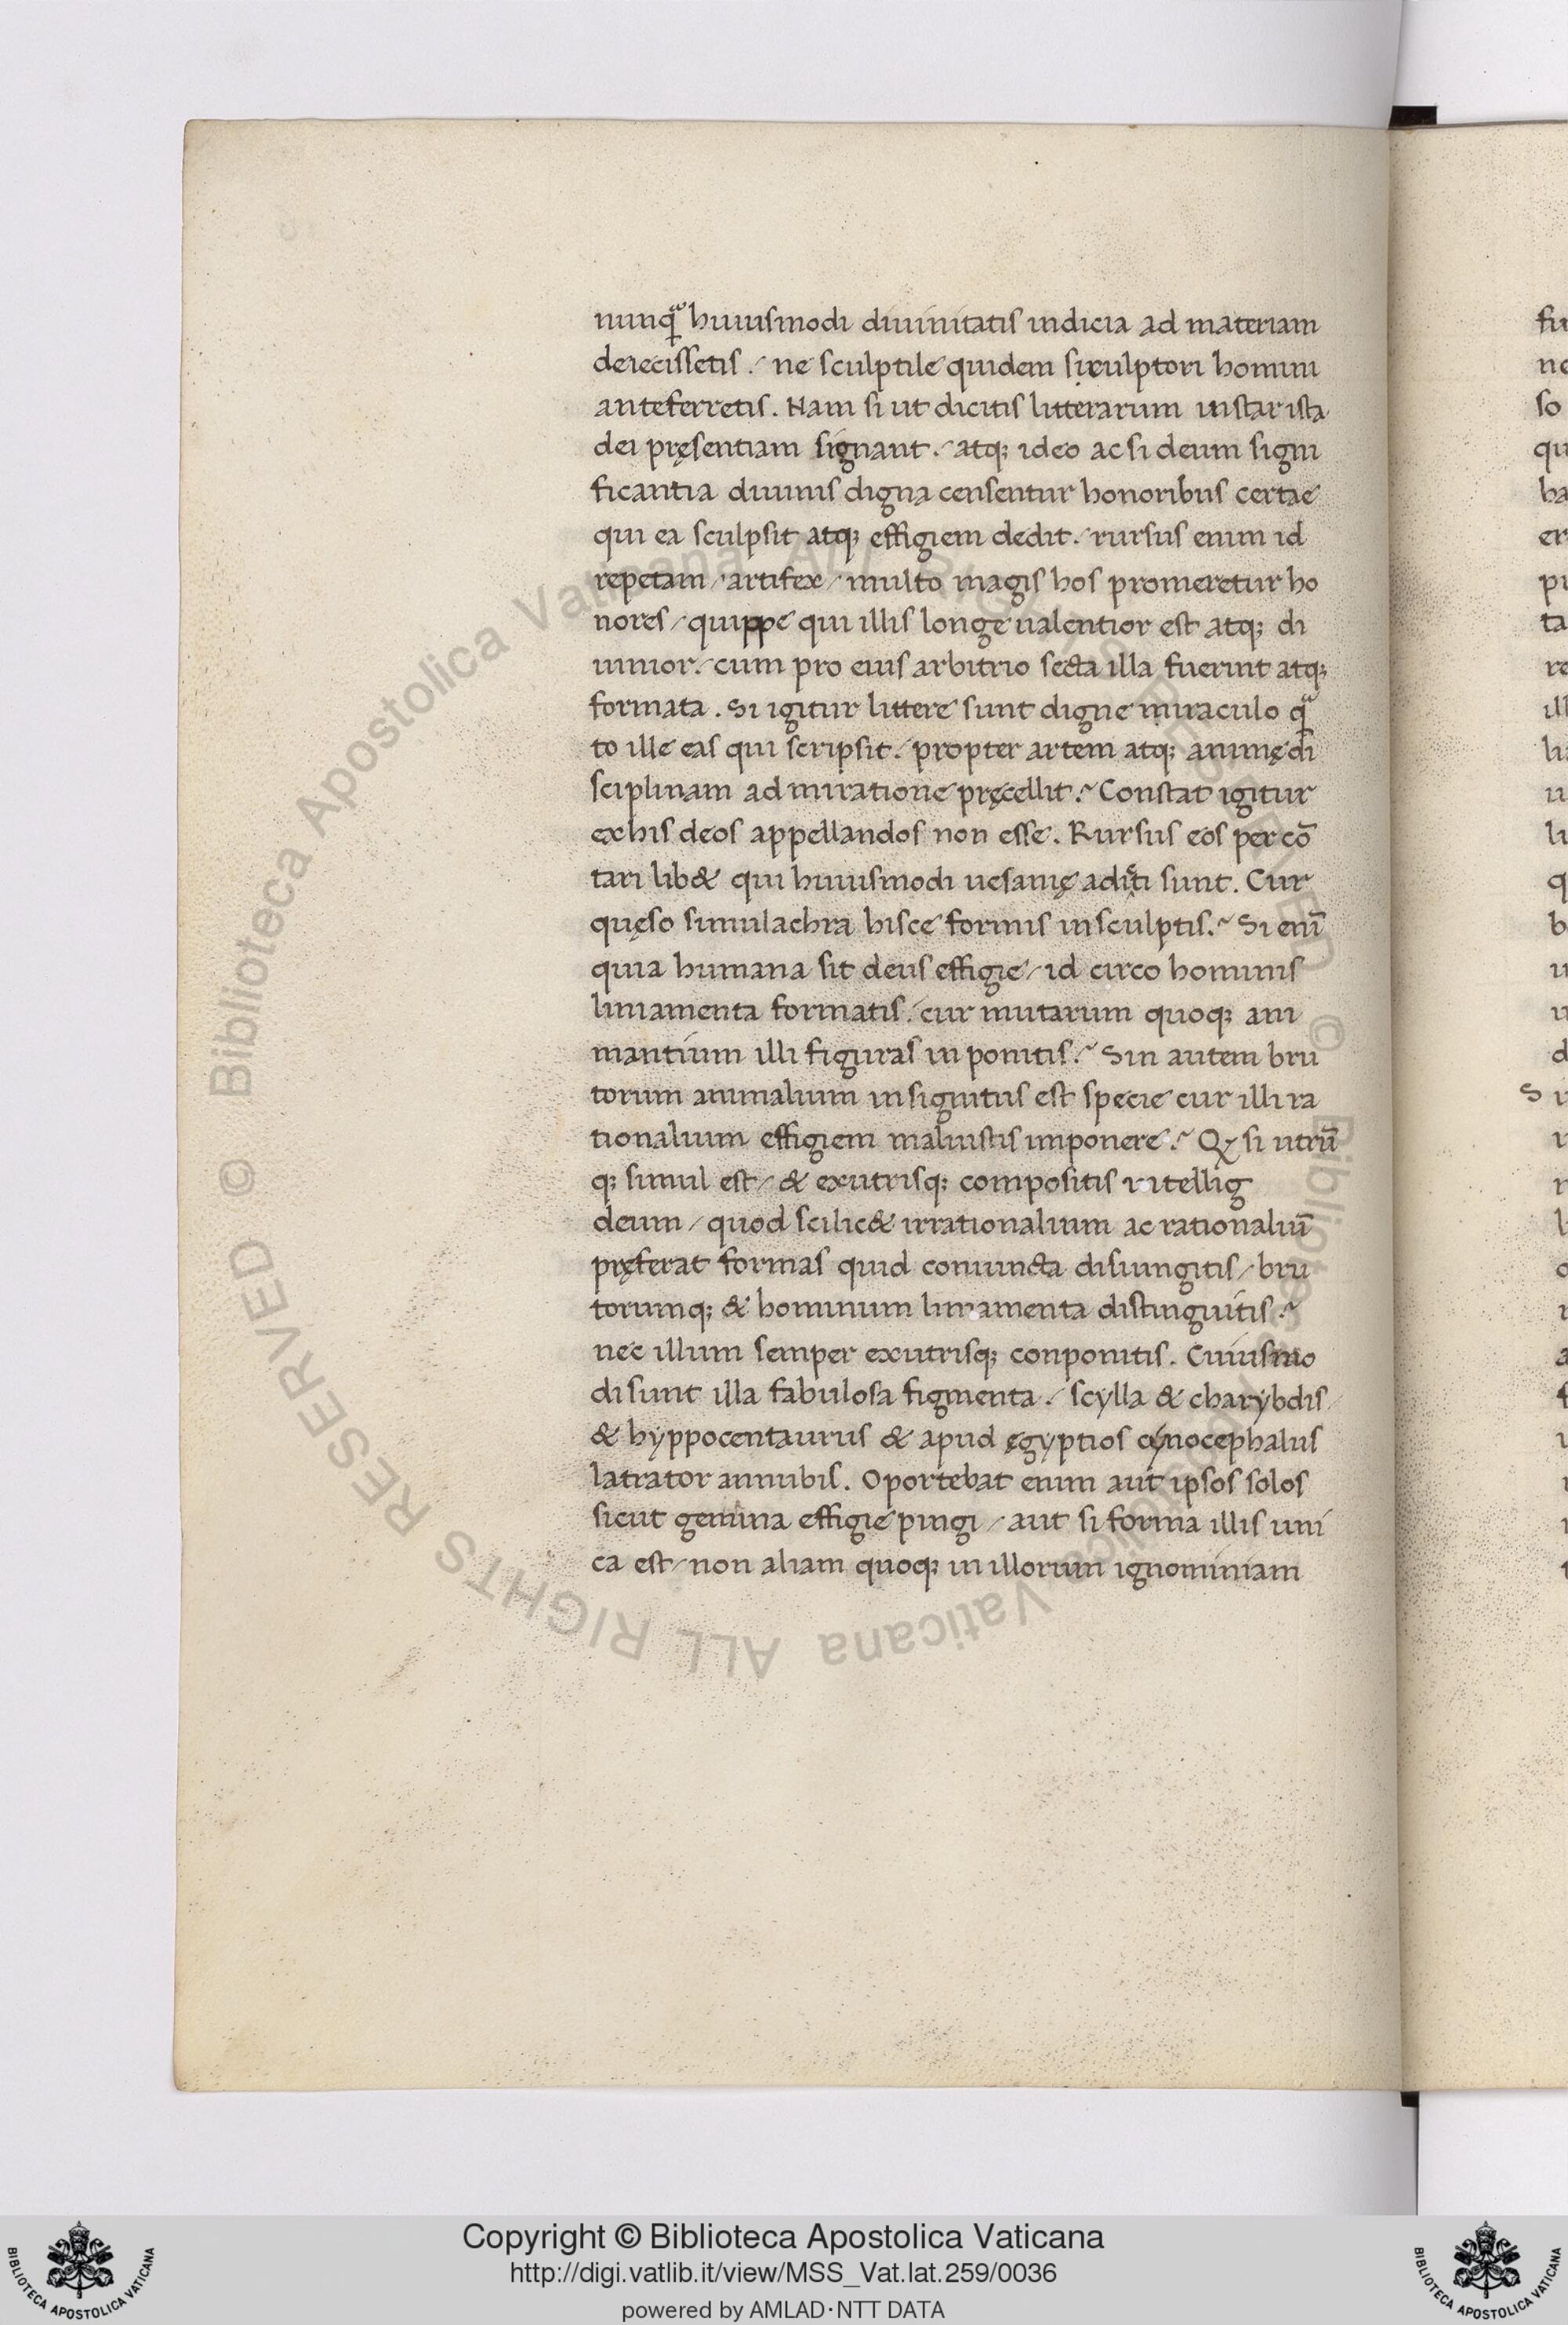 nunqᷓ huiusmodi diuinitatis indicia ad materiam
deiecissetis. / ne sculptile quidem sculptori homini
anteferretis. Nam si ut dicitis litterarum instar ista
dei pręsentiam signant. / atq; ideo ac si deum signi
ficantia diuinis digna censentur honoribus certae
qui ea sculpsit atq; effigiem dedit. / rursus enim id
repetam / artifex / multo magis hos promeretur ho
nores / quippe qui illis longe ualentior est atq; di
uinior. / cum pro eius arbitrio secta illa fuerint atq;
formata. Si igitur littere sunt digne miraculo qᷓ
to ille eas qui scripsit. / propter artem atq; animę di
sciplinam admiratione pręcellit? Constat igitur
ex his deos appellandos non esse. Rursus eos per cō
tari lib& qui huiusmodi uesanię sunt. Cur
quęso simulachra hisce formis insculptis? Si enī
quia humana sit deus effigie / id circo hominis
liniamenta formatis. / cur mutarum quoq; ani
mantium illi figuras in ponitis? Sin autem bru
torum animalium insignitus est specie cur illi ra
tionalium effigiem maluistis imponere? Qd si utrū
q; simul est / & ex utrisq; compositis intellig
deum / quod scilic& irrationalium ac rationaliū
pręferat formas quid coniuncta disiungitis / bru
torumq; & hominum liniamenta distinguitis?
nec illum semper ex utrisq; conponitis. Cuiusmo
di sunt illa fabulosa figmenta. / scylla & charybdis /
& hyppocentaurus & apud ęgyptios cynocephalus
latrator annubis. Oportebat enim aut ipsos solos
sicut gemina effigie pingi / aut si forma illis uni
ca est / non aliam quoq; in illorum ignominiam
fu
ne
so
qu
ha
er
pr
ta
re
ill
li
u
li
q
b
u
u
d
S
Biblioteca Apostolica Vaticana ALL RIGHTS RESERVED ©
Copyright © Biblioteca Apostolica Vaticana
http://digi.vatlib.it/view/MSS_Vat.lat.259/0036
powered by AMLAD·NTT DATA
BIBLIOTECA APOSTOLICA VATICANA
BIBLIOTECA APOSTOLICA VATICANA